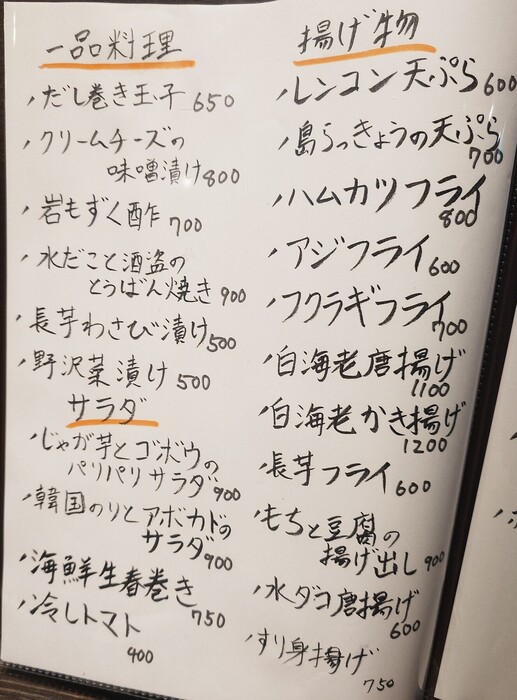 一品料理
だし巻き玉子 650
クリームチーズの
味噌漬け 800
岩もずく酢 700
水だこと酒盗の
とうばん焼き 900
長芋わさび漬け 500
野沢菜漬け 500
サラダ
じゃが芋とゴボウの
パリパリサラダ 900
韓国のりとアボカドの
サラダ 900
海鮮生春巻き
750
冷しトマト
400
揚げ物
レンコン天ぷら 600
島らっきょうの天ぷら
700
ハムカツフライ
800
アジフライ 600
フクラギフライ
700
白海老唐揚げ
1100
白海老かき揚げ
1200
長芋フライ 600
もちと豆腐の
揚げ出し 900
水ダコ唐揚げ
600
すり身揚げ
750